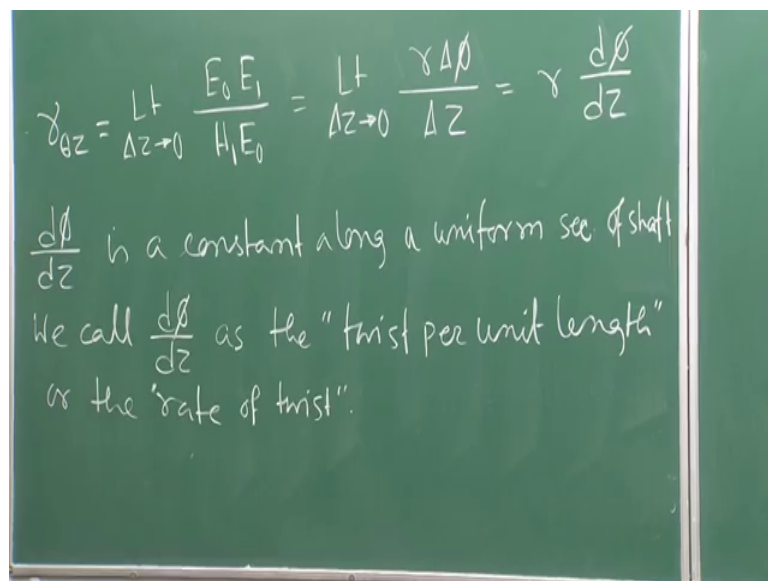 γ_θz = Lt Δz→0 E₀E₁/H₁E₀ = Lt Δz→0 rΔφ/Δz = r dφ/dz
dφ/dz is a constant along a uniform sec. of shaft
We call dφ/dz as the "twist per unit length"
or the "rate of twist".